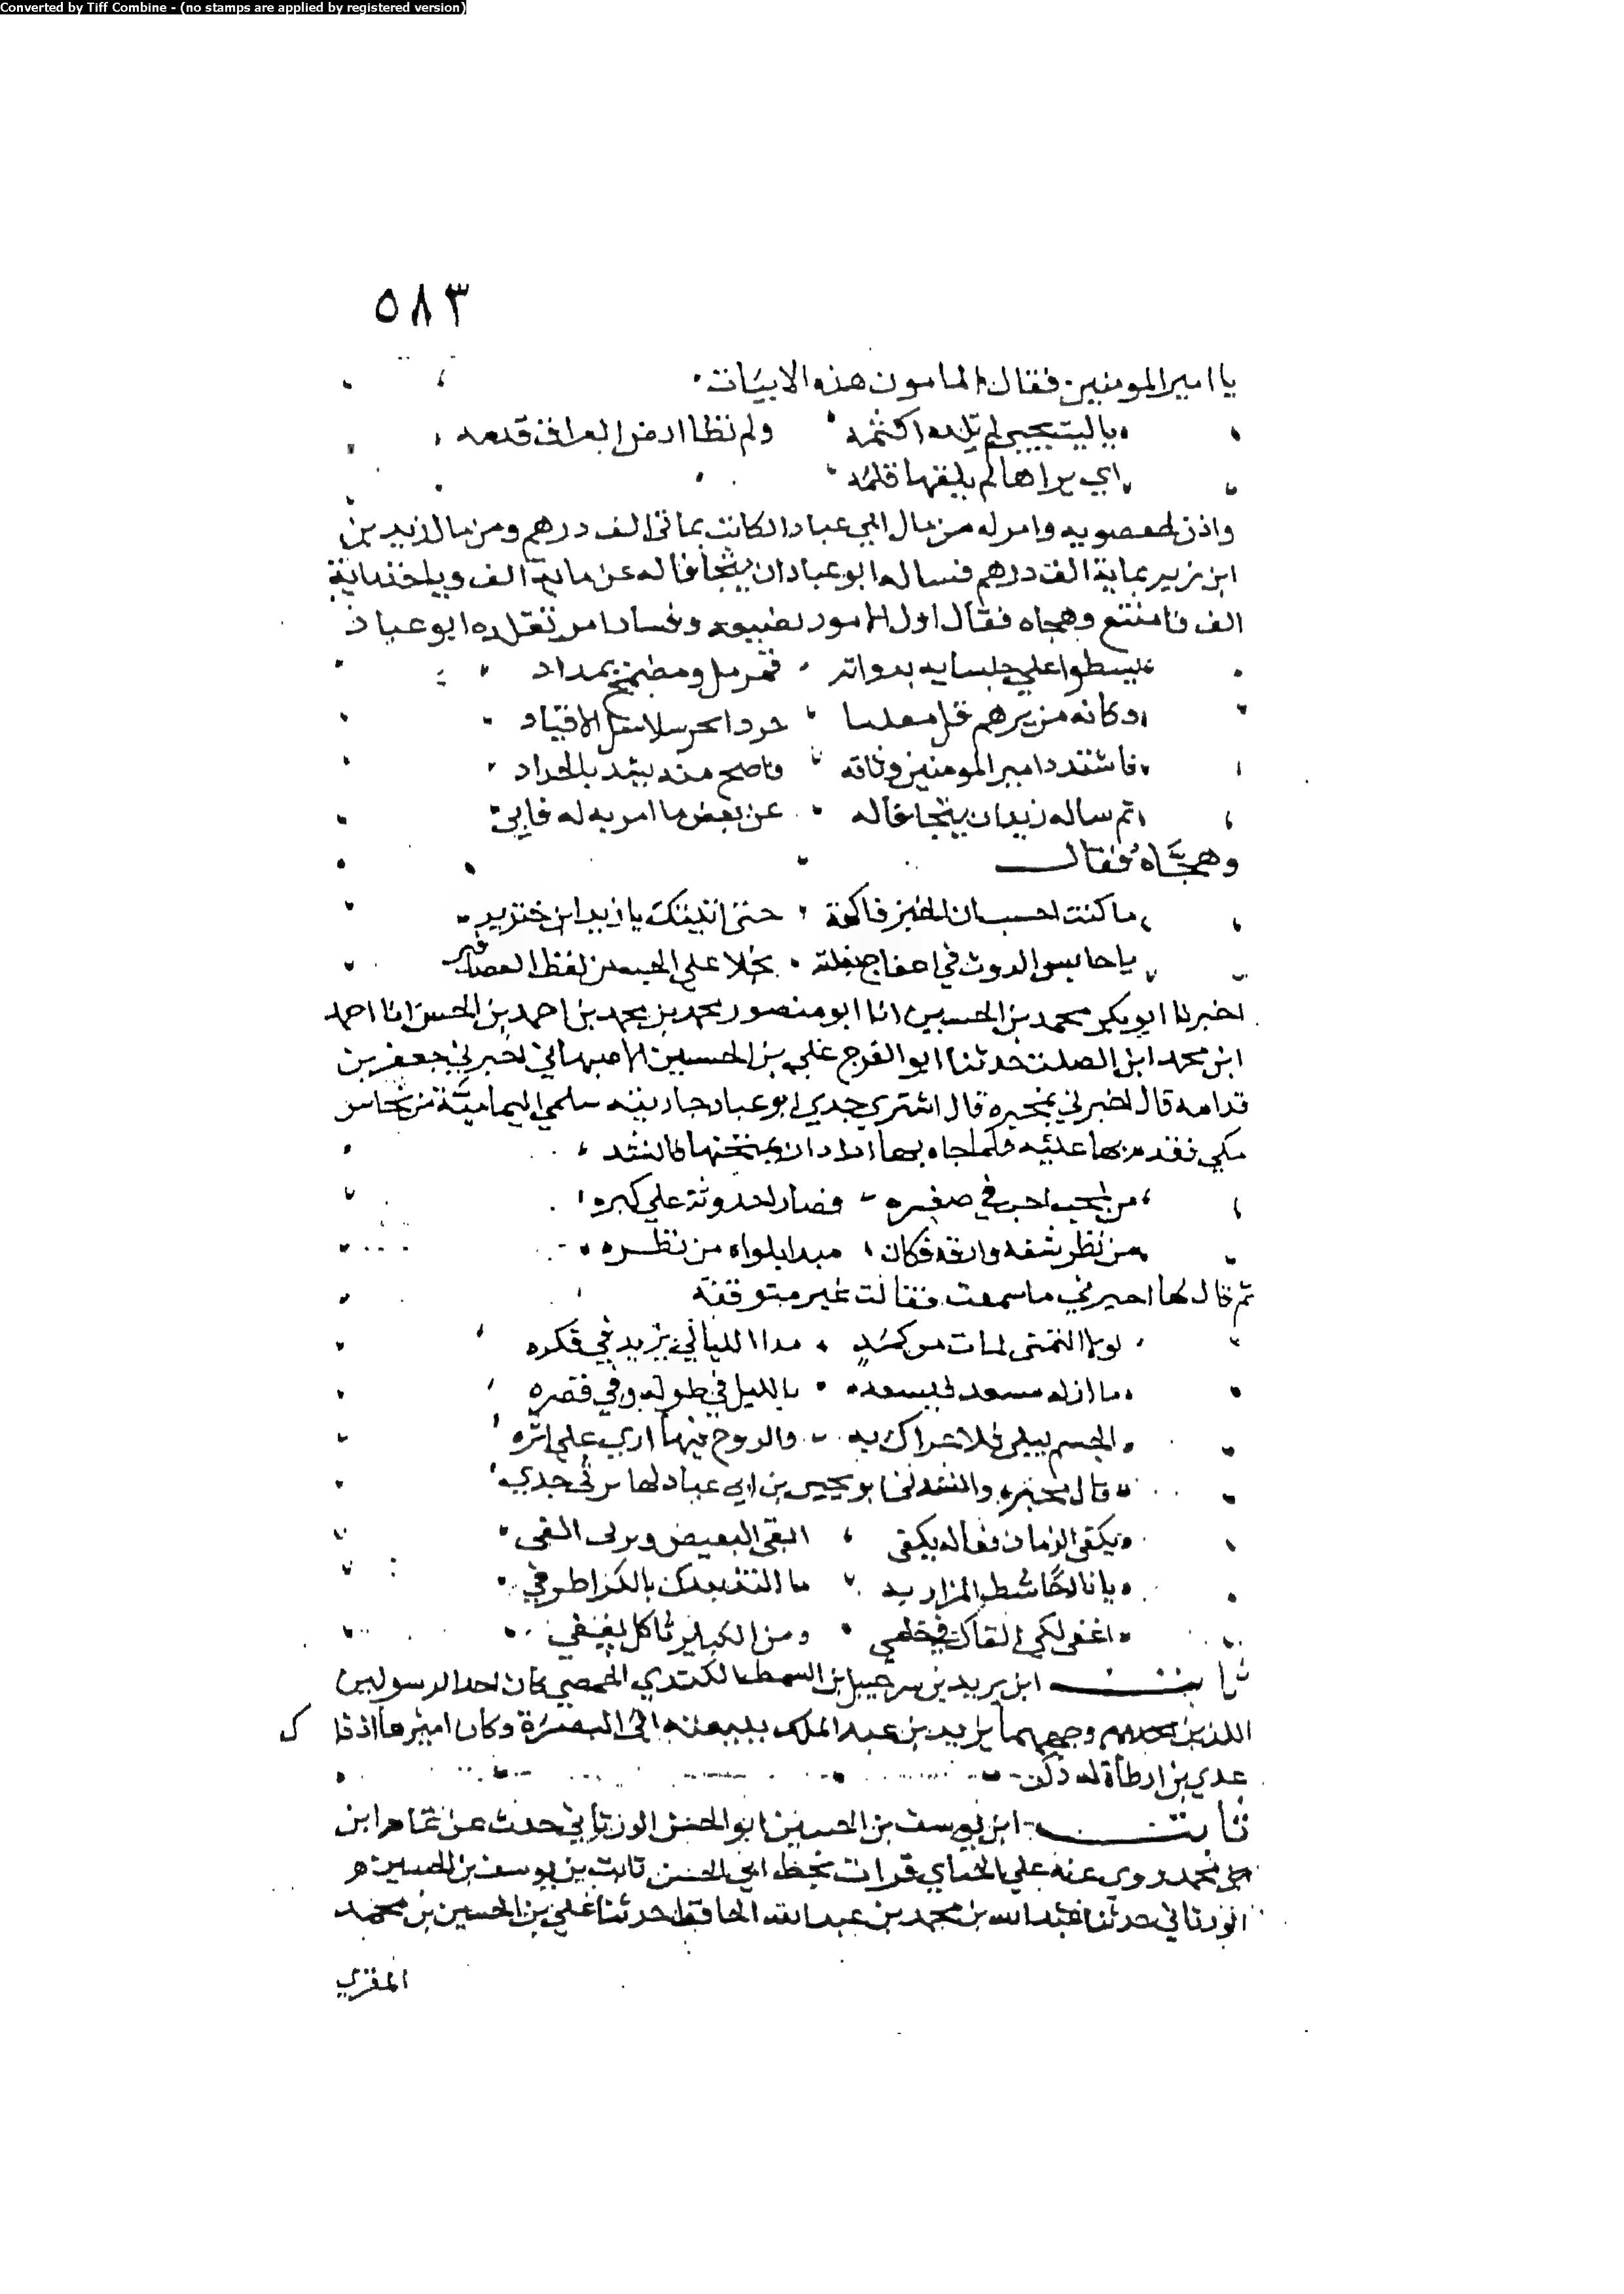 Converted by Tiff Combine - (no stamps are applied by registered version)
٥٨٣
يا امير المومنين فقال المامون هذه الابيات
ياليت يحيى لم يلده اكثمه ولم تطا ارض العراق قدمه
اي يراها لم يليقها قلمه
واذن لصعصويه وامر له من مال ابي عباد الكاتب بماتى الف درهم ومن مال زيد بن
ابن زير بماية الف درهم فساله ابو عباد ان يتجافا له عن ماية الف وياخذ ماية
الف فامتنع وهجاه فقال اول الامور بضيعة وفساد امر تقلده ابو عباد
يسطوا على جلسايه بدواته فمرمل ومضمخ بمداد
وكانه من دير هرقل حرد يجر سلاسل الاقياد
فاشدد امير المومنين وثاقه فاصح منه بيد بالحداد
ثم ساله زيد ان يتجافا له عن بعض ما امر به له فابى
وهجاه فقال
ما كنت احسب ان الخبز فاكهة حتى اتيتك يا زيد ابن خنزير
يا حابس الروث في اعفاج بغلته بخلا على الحب من لقط العصافير
اخبرنا ابو بكر محمد بن الحسين انا ابو منصور محمد بن محمد بن احمد بن الحسن انا احمد
ابن محمد ابن الصلت حدثنا ابو الفرج علي بن الحسين الاصبهاني اخبرني جعفر بن
قدامه قال اخبرني قال اشتري جدي ابو عباد جاريته سلمي اليمامية من نخاس
مكي فقدم بها عليه فلما جاه بها اراد ان يمتحنها فانشد
من لمحب احب في صغره فصار احدوثة علي كبره
من نظر شفه وارقه فكان مبدا بلواه من نظره
ثم قال لها اجيزي ما سمعت فقالت غير متوقفة
لولا التمني لمات من كمد مدا الليالي يزيد في فكره
ما ان له مسعد فيسعده بالليل في طوله وفي قصره
الجسم يبلى فلا حراك به والروح فيها اري على اثره
قال وانشدنا ابو يحيى بن ابي عباد لها ترثي جدي
الزمان فماله
يا نازحا شط المزار به
اغفى لكي القاك في حلمي ومن الكباير ثاكل يغفي
ثابت ابن يزيد بن شرحبيل ابن السمط الكندي الحمصي كان احد الرسولين
اللذين وجههما يزيد بن عبد الملك ببيعته الى البصرة وكان اميرها اذ ذاك
عدي بن ارطاة له ذكر
ثابت ابن يوسف بن الحسين ابو الحسن الورثاني حدث عن تمام ابن
محمد روى عنه علي الحناي قرات بخط ابي الحسن ثابت بن يوسف بن الحسين
الورثاني حدثنا عبد الله بن محمد بن عبد الله الحافظ حدثنا علي بن الحسين بن محمد
المقري